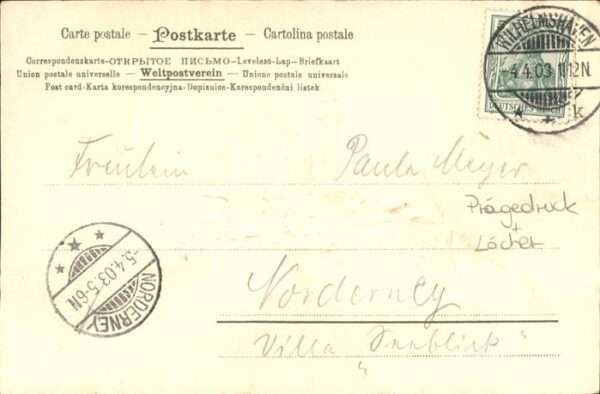 Carte postale – Postkarte – Cartolina postale
Correspondenzkarte-ОТКРЫТОЕ ПИСЬМО-Levelezö-Lap-Briefkaart
Union postale universelle – Weltpostverein – Unione postale universale
Post card-Karta korespondencyjna-Dopisnice-Korespondenční lístek
WILHELMSHAVEN
4.4.03.11-12N.
* * k
DEUTSCHES REICH
Fräulein Paula Meyer
Prägedruck
+
Löcher
-5.4.03.5-6N
NORDERNEY
Norderney
Villa "Seeblick"